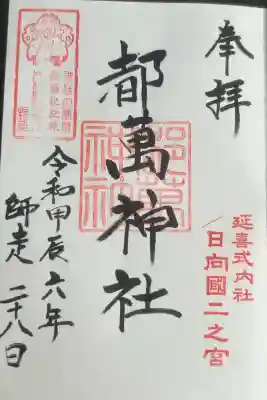 奉拝
延喜式内社
日向國二之宮
都萬神社
令和甲辰六年
師走二十八日